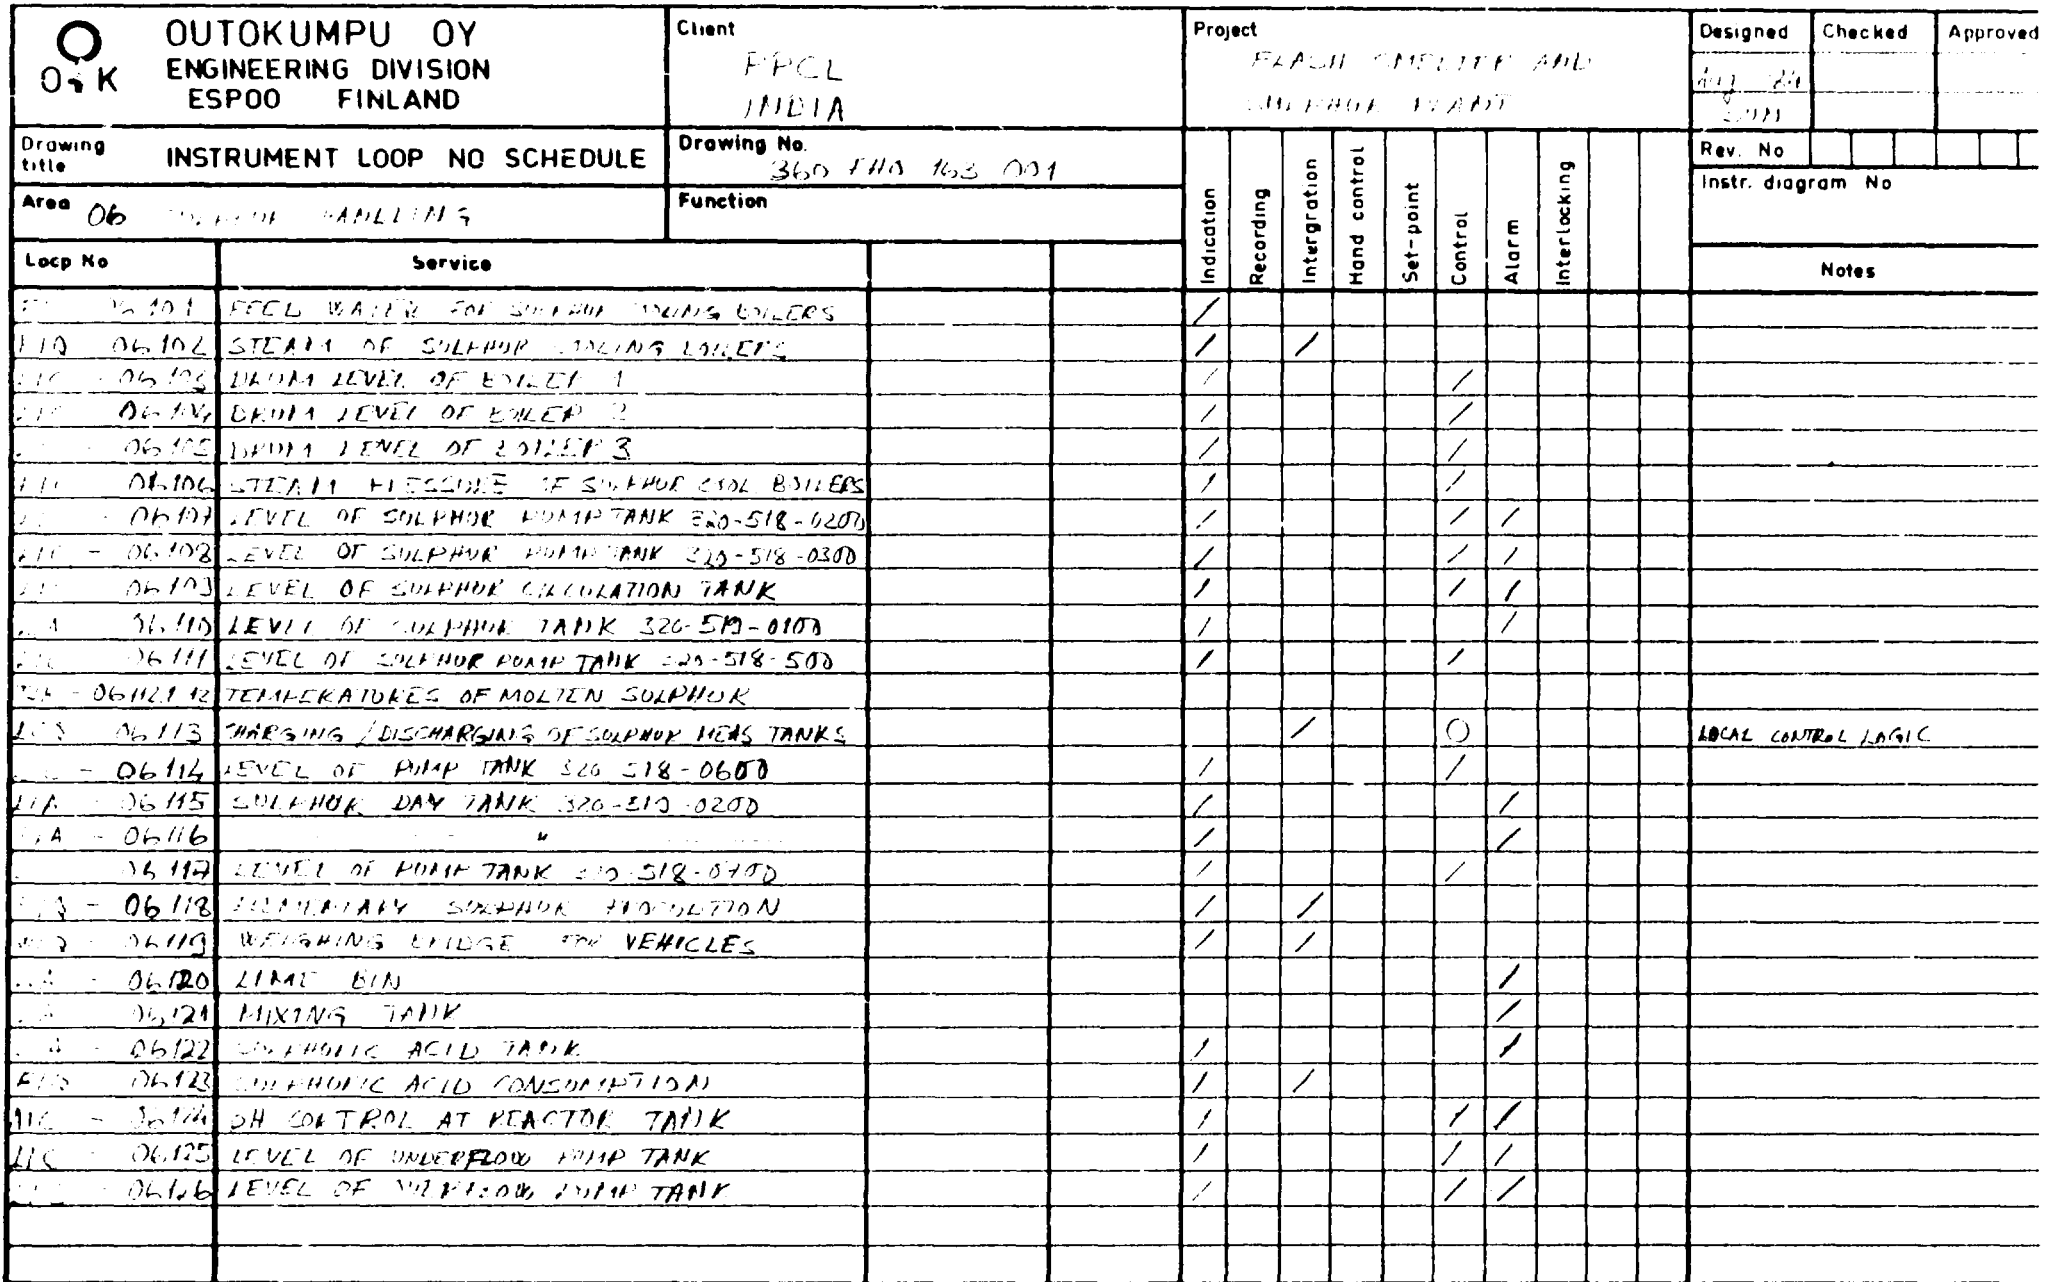 OUTOKUMPU OY
ENGINEERING DIVISION
ESPOO FINLAND
Client
PPCL
INDIA
Project
FLASH SMELTER AND
SULPHUR PLANT
Designed Checked Approved
Aug
Drawing title INSTRUMENT LOOP NO SCHEDULE
Drawing No.
360 163 001
Rev. No
Instr. diagram No
Area 06 SULPHUR HANDLING
Function
Locp No Service Indication Recording Intergration Hand control Set-point Control Alarm Interlocking Notes
06101 FEED WATER FOR SULPHUR COOLING BOILERS /
FIQ 06102 STEAM OF SULPHUR COOLING BOILERS / /
LIC - 06103 DRUM LEVEL OF BOILER 1 / /
LIC 06104 DRUM LEVEL OF BOILER 2 / /
- 06105 DRUM LEVEL OF BOILER 3 / /
06106 STEAM PRESSURE OF SULPHUR COOL BOILERS / /
- 06107 LEVEL OF SULPHUR PUMP TANK 320-518-0200 / / /
LIC - 06108 LEVEL OF SULPHUR PUMP TANK 320-518-0300 / / /
06109 LEVEL OF SULPHUR CIRCULATION TANK / / /
06110 LEVEL OF SULPHUR TANK 320-519-0100 / /
06111 LEVEL OF SULPHUR PUMP TANK 320-518-500 / /
- 06112.1-12 TEMPERATURES OF MOLTEN SULPHUR
06113 CHARGING / DISCHARGING OF SULPHUR MEAS TANKS / O LOCAL CONTROL LOGIC
- 06114 LEVEL OF PUMP TANK 320 518-0600 / /
LIA - 06115 SULPHUR DAY TANK 320-519-0200 / /
- 06116 " / /
06117 LEVEL OF PUMP TANK 320-518-0700 / /
- 06118 ELEMENTARY SULPHUR PRODUCTION / /
- 06119 WEIGHING BRIDGE FOR VEHICLES / /
- 06120 LIME BIN /
06121 MIXING TANK /
- 06122 SULPHURIC ACID TANK / /
FIQ 06123 SULPHURIC ACID CONSUMPTION / /
- 06124 PH CONTROL AT REACTOR TANK / / /
LIC - 06125 LEVEL OF UNDERFLOW PUMP TANK / / /
- 06126 LEVEL OF OVERFLOW PUMP TANK / / /